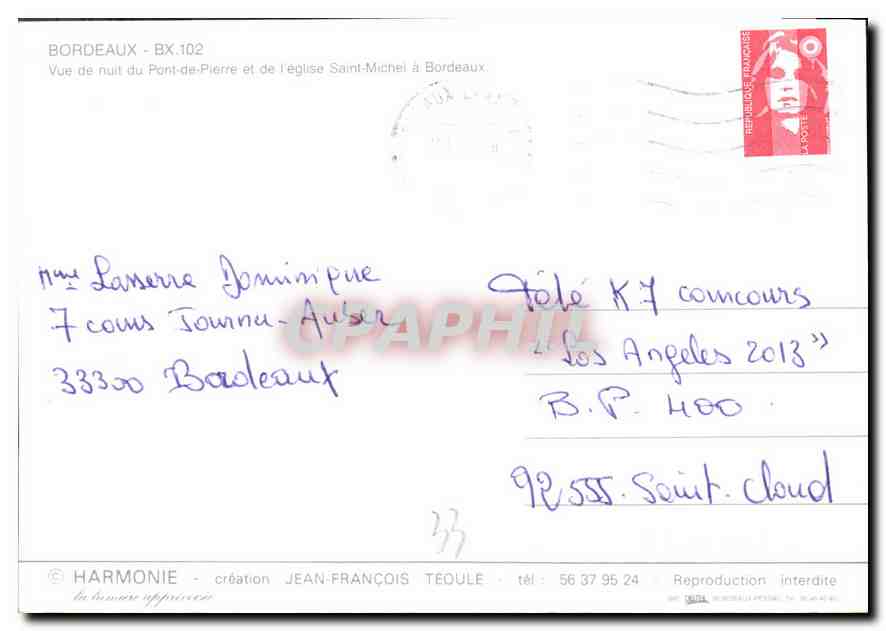 BORDEAUX - BX.102
Vue de nuit du Pont-de-Pierre et de l'église Saint-Michel à Bordeaux.
REPUBLIQUE FRANÇAISE
LA POSTE
Mme Lasserre Dominique
7 cours Journu-Auber
33300 Bordeaux
CPAPHIL
Télé K7 concours
"Los Angeles 2013"
B.P. 400
92555. Saint. Cloud
33
© HARMONIE - création JEAN-FRANÇOIS TEOULE - tél : 56 37 95 24 - Reproduction interdite
la lumière apprivoisée